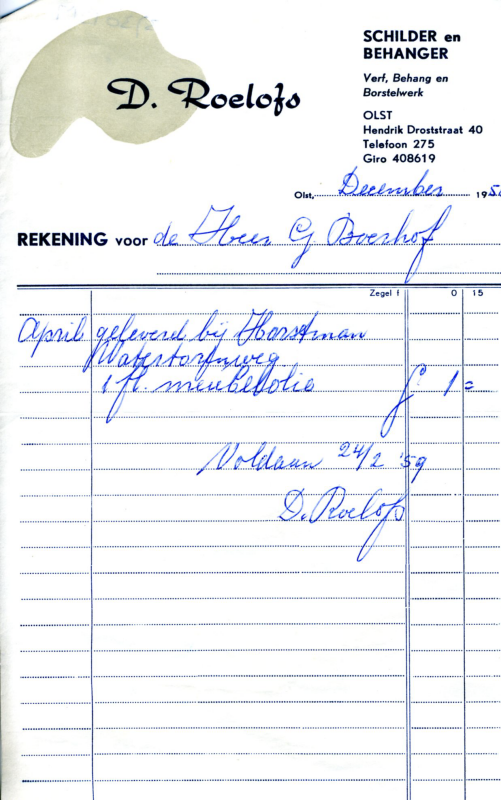 D. Roelofs
SCHILDER en
BEHANGER
Verf, Behang en
Borstelwerk
OLST
Hendrik Droststraat 40
Telefoon 275
Giro 408619
Olst, December 195
REKENING voor de Heer G Boerhof
Zegel f 0 15
April geleverd bij Horstman
Watertorenweg
1 fl. meubelolie f 1 =
Voldaan 24/2 '59
D. Roelofs